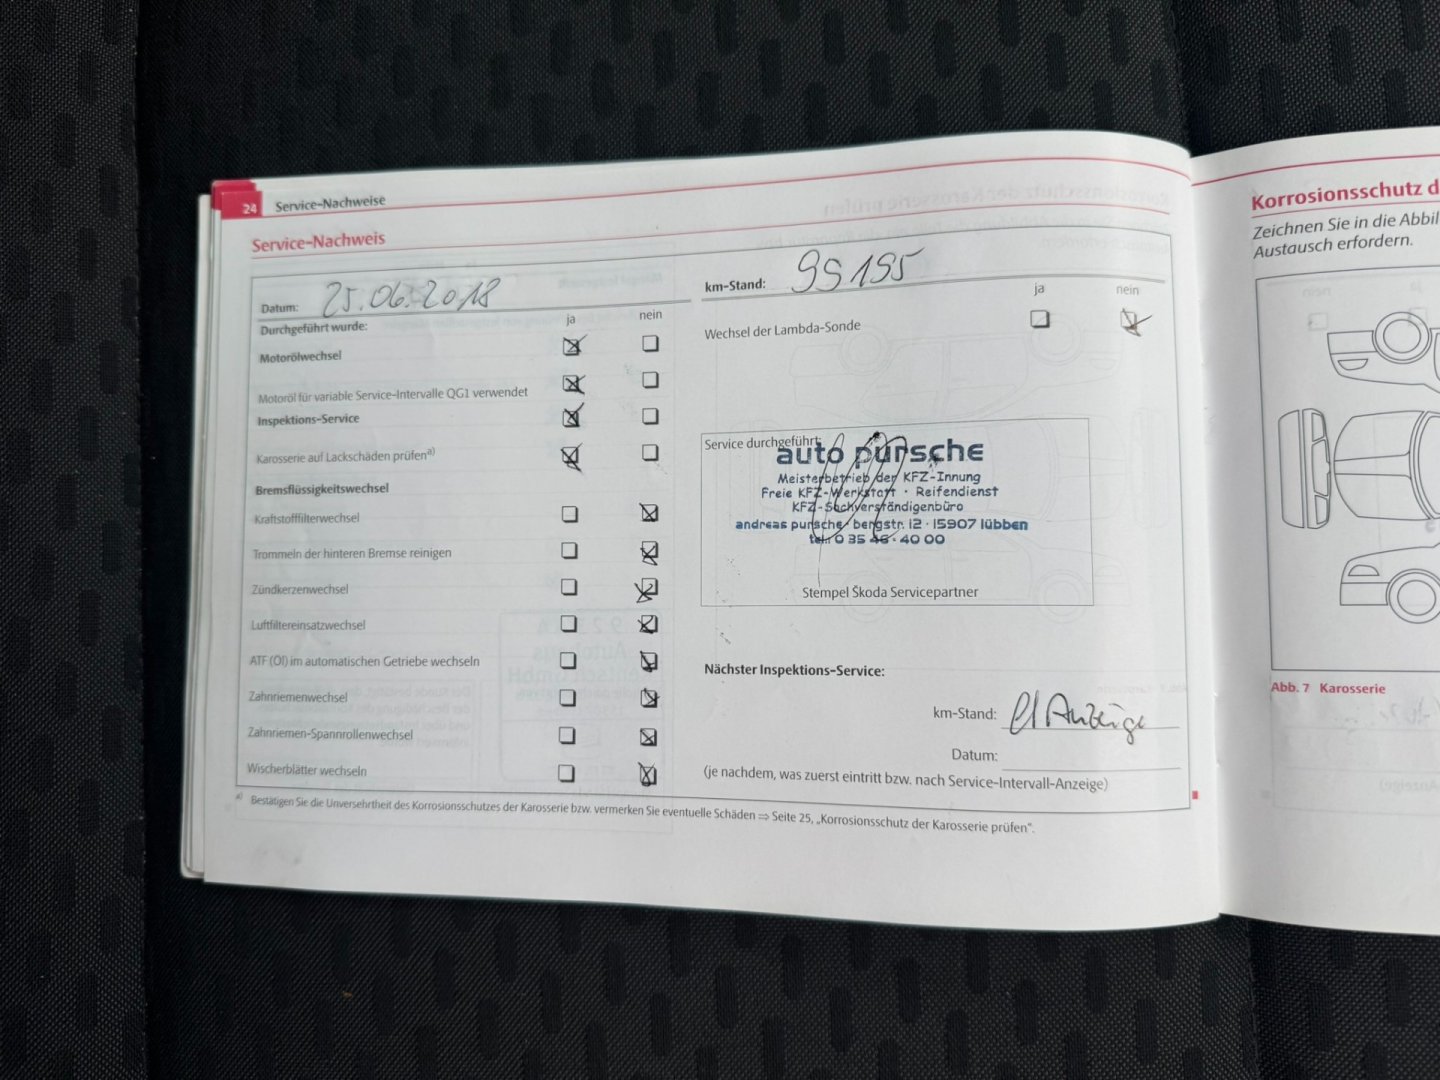 24 Service-Nachweise
Service-Nachweis
Datum: 25.06.2018
Durchgeführt wurde: ja nein
Motorölwechsel
Motoröl für variable Service-Intervalle QG1 verwendet
Inspektions-Service
Karosserie auf Lackschäden prüfen a)
Bremsflüssigkeitswechsel
Kraftstofffilterwechsel
Trommeln der hinteren Bremse reinigen
Zündkerzenwechsel
Luftfiltereinsatzwechsel
ATF (Öl) im automatischen Getriebe wechseln
Zahnriemenwechsel
Zahnriemen-Spannrollenwechsel
Wischerblätter wechseln
km-Stand: 99195
ja nein
Wechsel der Lambda-Sonde
Service durchgeführt:
auto pursche
Meisterbetrieb der KFZ-Innung
Freie KFZ-Werkstatt · Reifendienst
KFZ-Sachverständigenbüro
andreas pursche · bergstr. 12 · 15907 lübben
tel.: 0 35 46 - 40 00
Stempel Škoda Servicepartner
Nächster Inspektions-Service:
km-Stand: lt Anzeige
Datum:
(je nachdem, was zuerst eintritt bzw. nach Service-Intervall-Anzeige)
a) Bestätigen Sie die Unversehrtheit des Korrosionsschutzes der Karosserie bzw. vermerken Sie eventuelle Schäden ⇒ Seite 25, „Korrosionsschutz der Karosserie prüfen“.
Korrosionsschutz d
Zeichnen Sie in die Abbil
Austausch erfordern.
Abb. 7 Karosserie